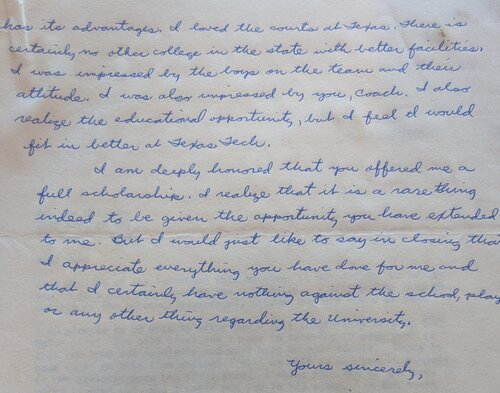 has its advantages. I loved the courts at Texas. There is
certainly no other college in the state with better facilities.
I was impressed by the boys on the team and their
attitude. I was also impressed by you, Coach. I also
realize the educational opportunity, but I feel I would
fit in better at Texas Tech.
I am deeply honored that you offered me a
full scholarship. I realize that it is a rare thing
indeed to be given the opportunity you have extended
to me. But I would just like to say in closing that
I appreciate everything you have done for me and
that I certainly have nothing against the school, play
or any other thing regarding the University.
Yours sincerely,